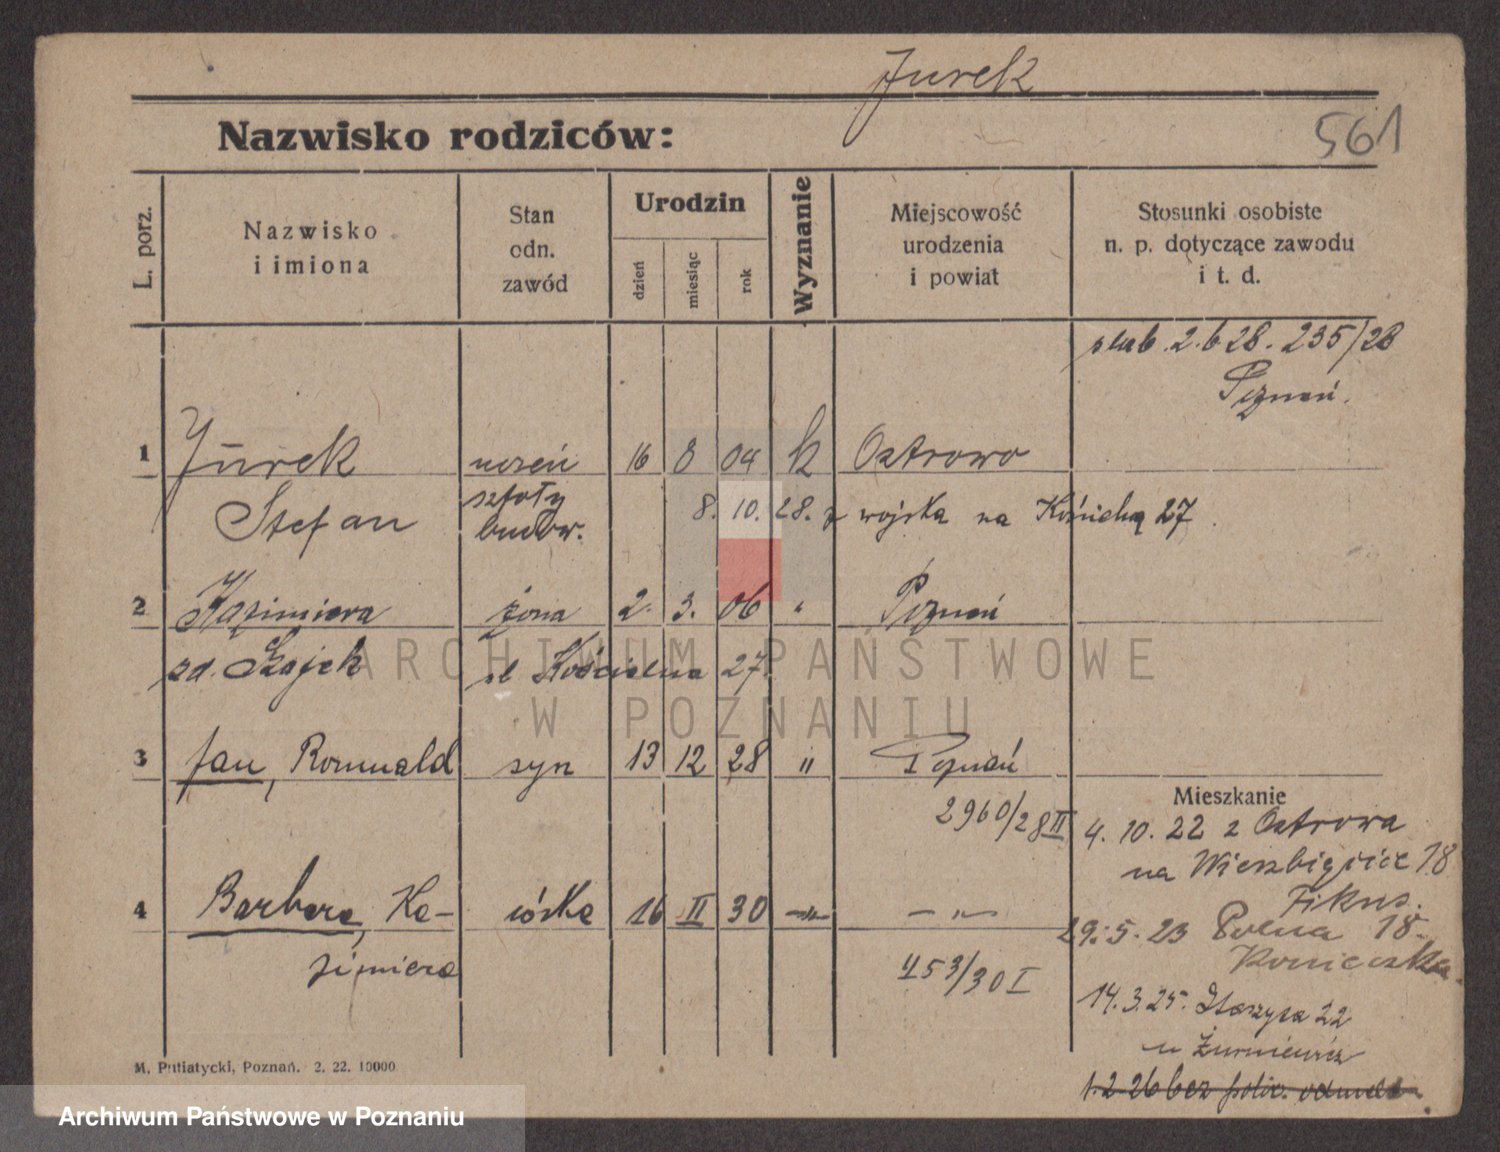 Jurek
Nazwisko rodziców:
561
L. porz.
Nazwisko
i imiona
Stan
odn.
zawód
Urodzin
dzień
miesiąc
rok
Wyznanie
Miejscowość
urodzenia
i powiat
Stosunki osobiste
n. p. dotyczące zawodu
i t. d.
ślub. 2. 6 28. 235/28
Poznań.
1 Jurek uczeń 16 8 04 k Ostrowo
Stefan szkoły budow. 8. 10. 28. z wojska na 27
2 Kazimiera żona 2. 3. 06 " Poznań
zd. Szajek ul Kościelna 27.
3 Jan, Romuald syn 13 12 28 " Poznań
2960/28 II
Mieszkanie
4. 10. 22 z Ostrowa
na Wierzbięcice 18
Fikus.
4 Barbara, Ka- córka 16 II 30 –"– –"–
zimiera
453/30 I
29. 5. 23 Polna 18
Konieczka
14. 3. 25. 22
u
1. 2. 26 bez policyj. odmeld.
M. Putiatycki, Poznań. 2. 22. 10000
ARCHIWUM PAŃSTWOWE
W POZNANIU
Archiwum Państwowe w Poznaniu